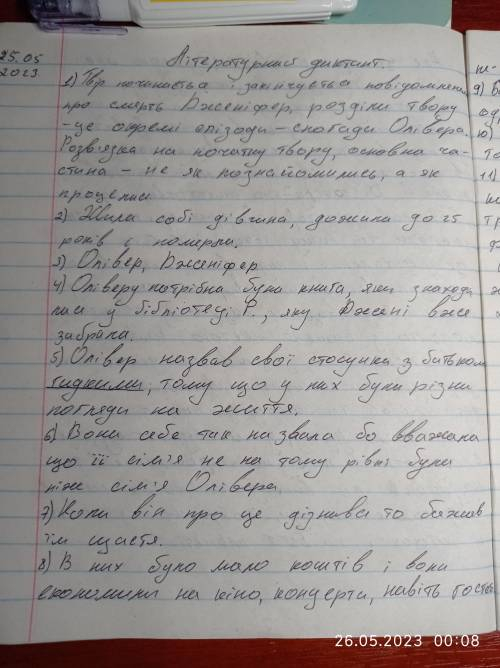 25.05
2023.
Літературний диктант.
1) Твір починається і закінчується повідомленням
про смерть Дженіфер, розділи твору
- це окремі епізоди - спогади Олівера.
Розв'язка на початку твору, основна ча-
стина - не як познайомились, а як
прощения
2) Жила собі дівчина, дожила до 25
років і померла.
3) Олівер, Дженіфер
4) Оліверу потрібна була книга, яка знаходи
лася у бібліотеці Р., яку Джені вже
забрала.
5) Олівер назвав свої стосунки з батьком
гидкими, тому що у них були різни
погляди на життя.
6) Вони себе так назвала бо вважала
що її сім'я не на тому рівні були
ніж сім'я Олівера
7) Коли він про це дізнався то бажав
їм щастя.
8) В них було мало коштів і вони
економили на кіно, концерти, навіть гостей
ні-
9)
10)
то
11)
26.05.2023 00:08